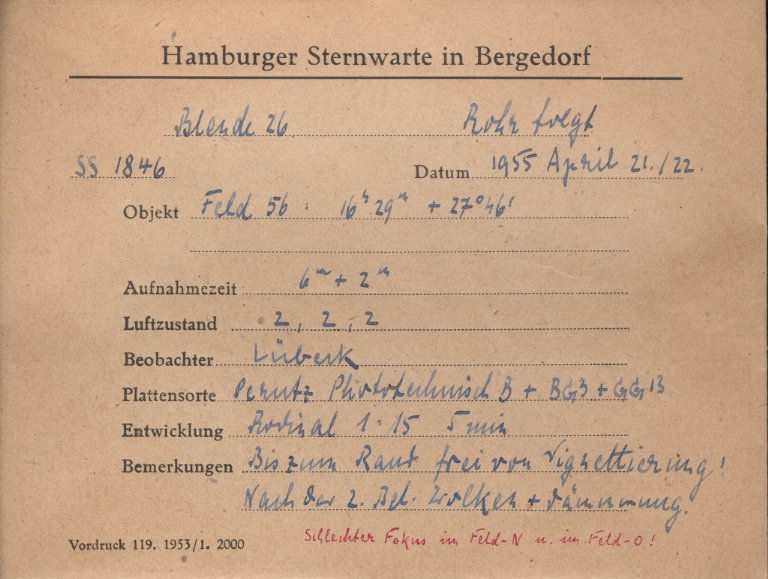 Hamburger Sternwarte in Bergedorf
Blende 26 Rohr folgt
SS 1846 Datum 1955 April 21./22.
Objekt Feld 56 : 16ʰ 29ᵐ + 27°46'
Aufnahmezeit 6ᵐ + 2ᵐ
Luftzustand 2, 2, 2
Beobachter Lübeck
Plattensorte Perutz Phototechnisch B + BG3 + GG13
Entwicklung Rodinal 1:15 5 min
Bemerkungen Bis zum Rand frei von Vignettierung!
Nach der 2. Bel. Wolken + Dämmerung.
Schlechter Fokus im Feld-N u. im Feld-O!
Vordruck 119. 1953/1. 2000